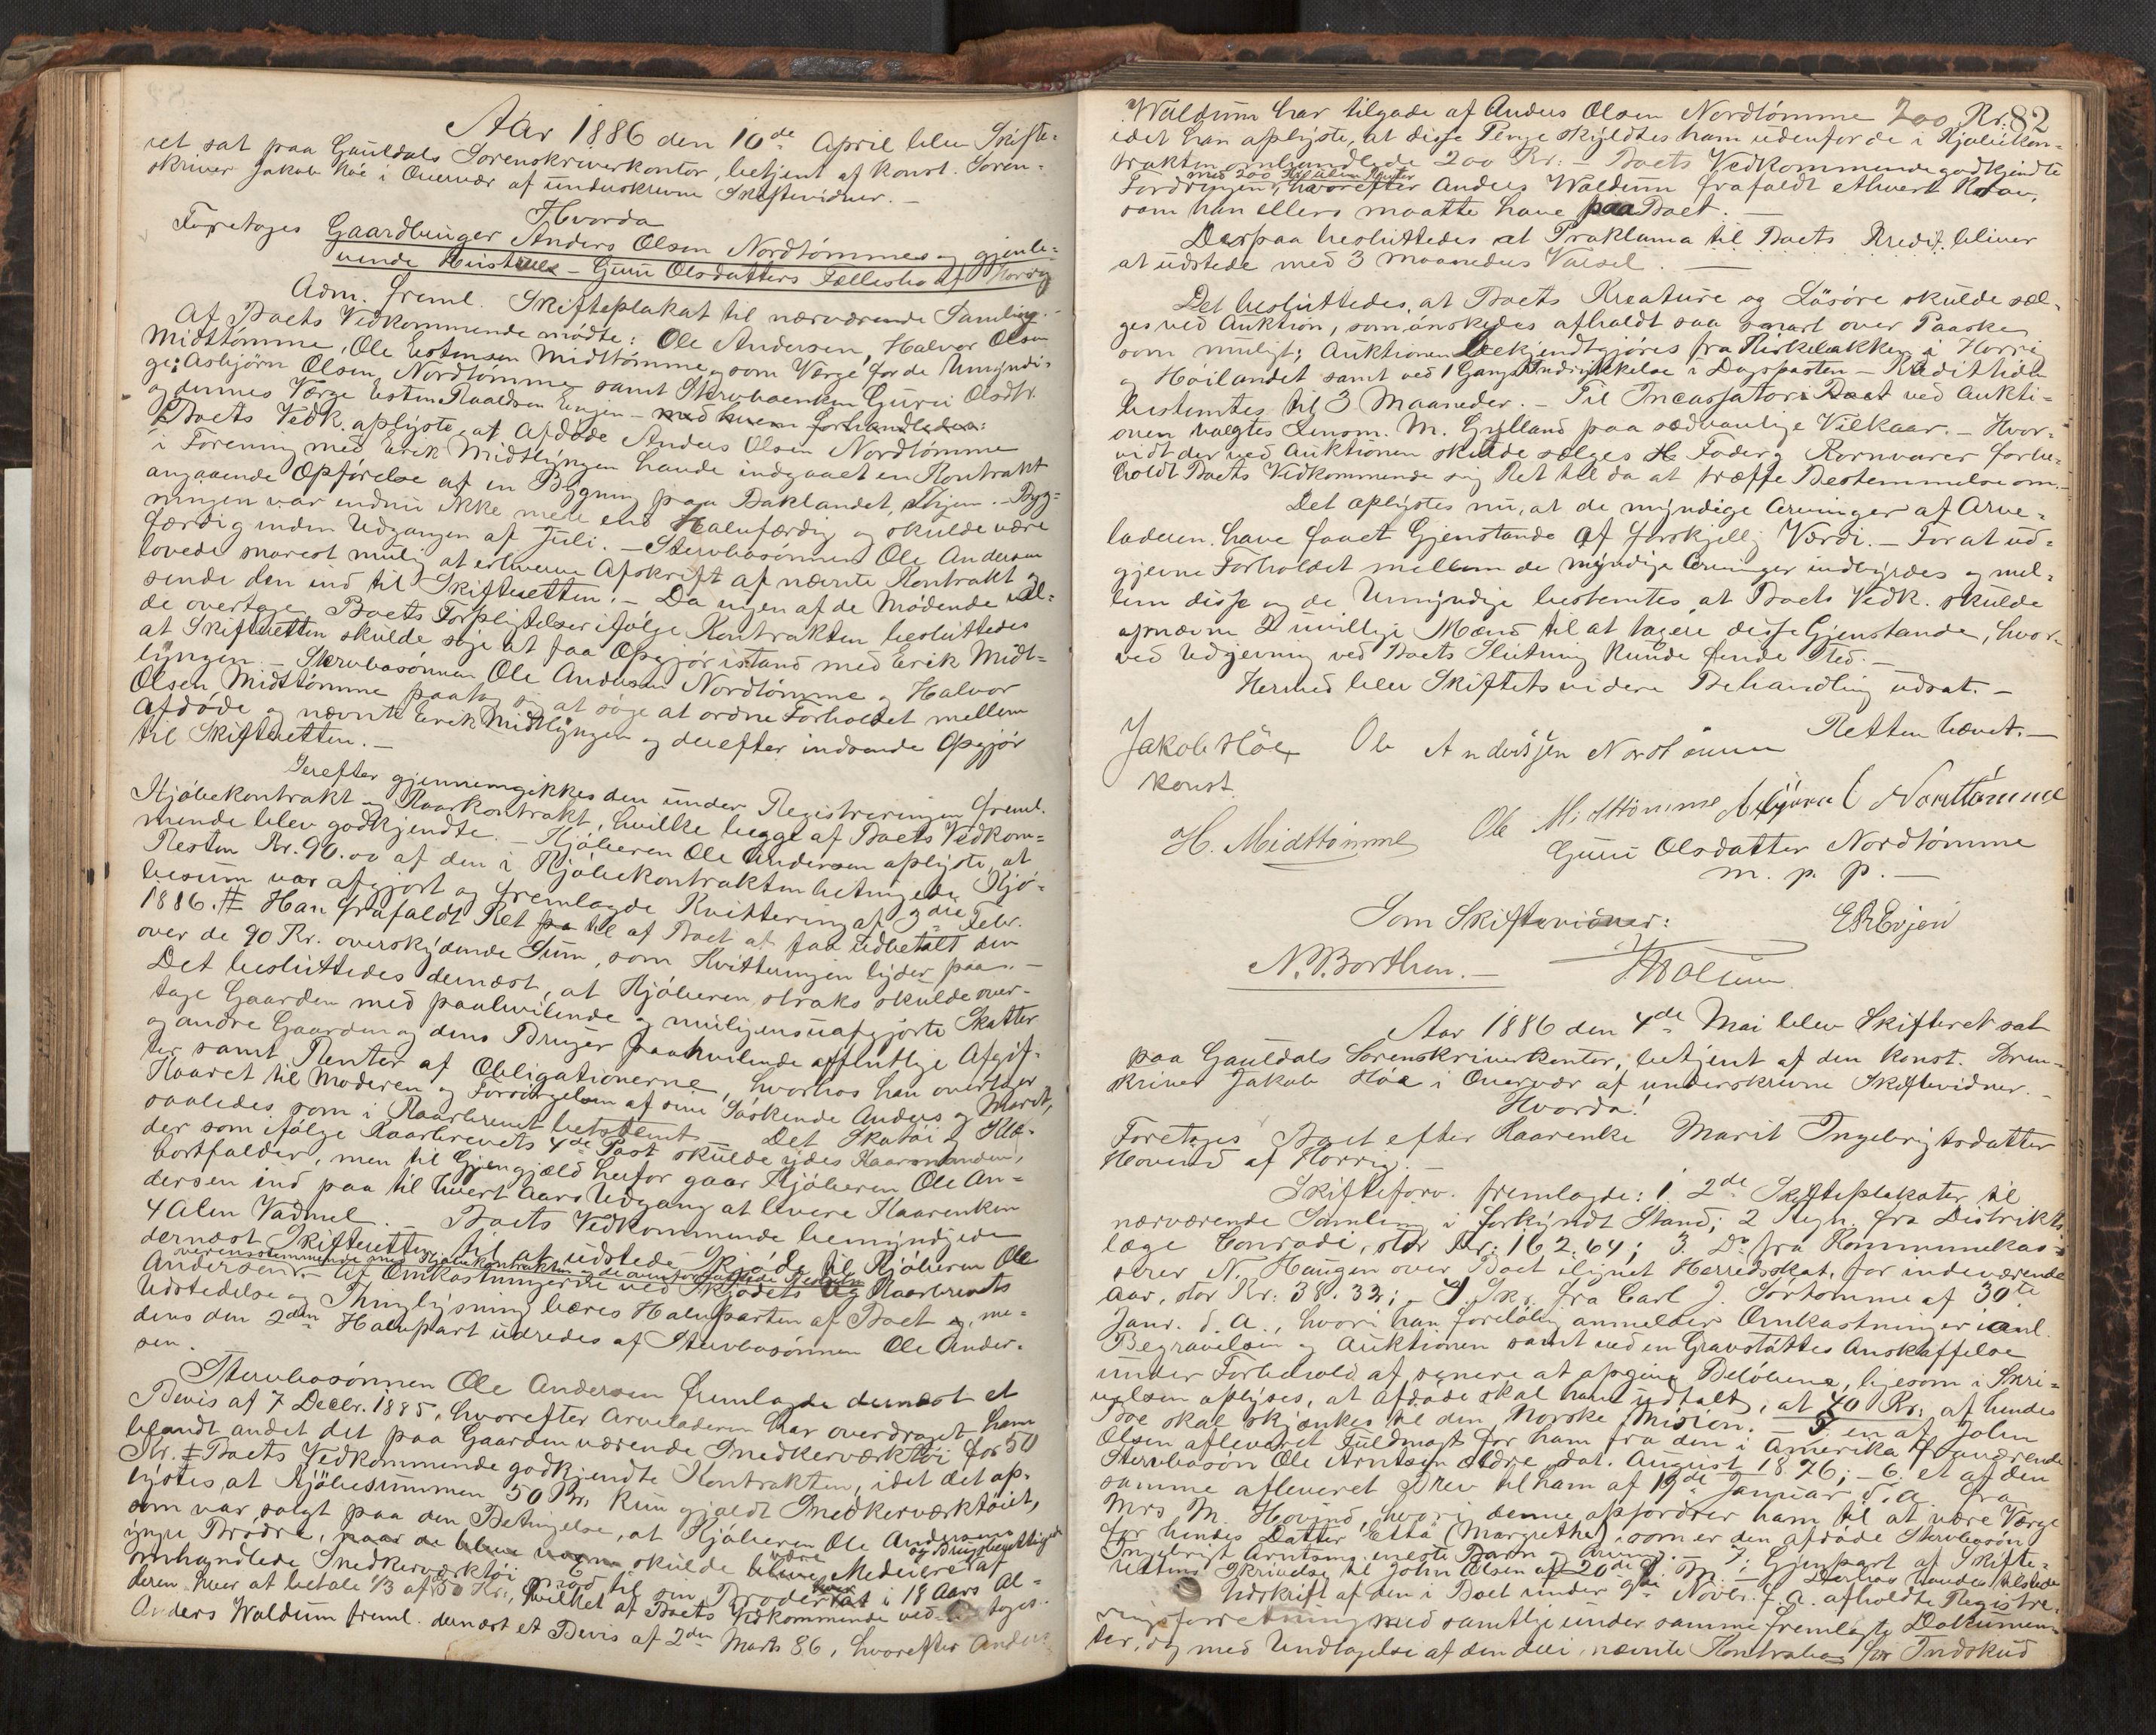 Aar 1886 den 10de April blev Skifte-
ret sat paa Gauldals Sorenskriverkontor, betjent af konst. Soren-
skriver Jakob Höe i Overvær af underskrevne Skiftevidner. —
Hvorda
Foretoges Gaardbruger Anders Olsen Nordtømmes og gjenle-
vende Hustrues – Guru Olsdatters Fællesbo af Horrig
Adm. freml. Skifteplakat til nærværende Samling. –
Af Boets Vedkommende mødte: Ole Andersen, Halvor Olsen
Midttømme, Ole Estensen Midttømme, som Værge for de Umyndi-
ge: Asbjörn Olsen Nordtømme samt Stervboenken Guru Olsdtr.
og dennes Værge Esten Roaldsen Evjen – med hvem forhandledes:
Boets Vedk. oplyste, at Afdøde Anders Olsen Nordtømme
i Forening med Erik Midtlyngen havde indgaaet en Kontrakt
angaaende Opførelse af en Bygning paa Baklandet, Thjem. – Byg-
ningen var endnu ikke mere end Halvfærdig og skulde være
færdig inden Udgangen af Juli. – Stervbosønnen Ole Andersen
lovede snarest mulig at erhverve Afskrift af nævnte Kontrakt og
sende den ind til Skifteretten. – Da ingen af de Mødende vil-
de overtage Boets Forpligtelser ifølge Kontrakten besluttedes
at Skifteretten skulde søge at faa Opgjør istand med Erik Midt-
lyngen. – Stervbosønnen Ole Andersen Nordtømme og Halvor
Olsen Midttømme paatog sig at søge at ordne Forholdet mellem
Afdøde og nævnte Erik Midtlyngen og derefter indsende Opgjør
til Skifteretten. –
Derefter gjennemgikkes den under Registreringen freml.
Kjøbekontrakt og Kaarkontrakt, hvilke begge af Boets Vedkom-
mende blev godkjendte. – Kjøberen Ole Andersen oplyste, at
Resten Kr. 90.00 af den i Kjøbekontrakten betingede Kjø-
besum var afgjort og fremlagde Kvittering af 9die Febr.
1886. Han frafaldt Ret til af Boet at faa udbetalt den
over de 90 Kr. overskydende Sum, som Kvitteringen lyder paa. –
Det besluttedes dernæst, at Kjøberen straks skulde over-
tage Gaarden med paahvilende og muligens uafgjorte Skatter
og andre Gaarden og dens Bruger paahvilende offentlige Afgif-
ter samt Renter af Obligationerne, hvorhos han overtager
Kaaret til Moderen og Forsørgelsen af sine Søskende Anders og Marit,
saaledes som i Kaarbrevet bestemt. Det Skatøi og Klæ-
der som ifølge Kaarbrevets 4de Post skulde ydes Kaarmanden,
bortfalder, men til Gjengjæld herfor gaar Kjøberen Ole An-
dersen ind paa til hvert Aars Udgang at levere Kaarenken
4 Alen Vadmel. – Boets Vedkommende bemyndigede
dernæst Skifteretten til at udstede Skjøde til Kjøberen Ole
overensstemmende med Kjøbekontrakten
Andersen. – Af Omkostningerne ved Skjødets og Kaarbrevets
Udstedelse og Thinglysning bæres Halvparten af Boet, me-
dens den 2den Halvpart udredes af Stervbosønnen Ole Ander-
sen.
Stervbosønnen Ole Andersen fremlagde dernæst et
Bevis af 7 Decbr. 1885, hvorefter Arveladeren har overdraget ham
blandt andet det paa Gaarden værende Snedkerværktøi for 50
Kr. Boets Vedkommende godkjendte Kontrakten, idet det op-
lystes, at Kjøbesummen 50 Kr. kun gjaldt Snedkerværktøiet,
som var solgt paa den Betingelse, at Kjøberen Ole Andersens
yngre Brødre, skulde være Medeiere og Brugsberettigede af
omhandlede Snedkerværktøi mod til sin Broder i 18 Aars Al-
deren hver at betale 1/3 af 50 Kr., hvilket af Boets Vedkommende vedtoges.
Anders Waldum freml. dernæst et Bevis af 2den Marts 86, hvorefter Anders
82
Waldum har tilgode af Anders Olsen Nordtømme 200 Kr.
idet han oplyste, at disse Penge skyldtes ham udenfor de i Kjøbekon-
trakten omhandlede 200 Kr. – Boets Vedkommende godkjendte
med 200 Kr. uden Renter
Fordringen, hvorefter Anders Waldum frafaldt ethvert Krav,
som han ellers maatte have paa Boet. —
Derpaa besluttedes at Proklama til Boets Kredit. bliver
at udstede med 3 Maaneders Varsel. —
Det besluttedes, at Boets Kreature og Løsøre skulde sæl-
ges ved Auktion, som ønskedes afholdt saa snart over Paaske
som muligt; Auktionen bekjendtgjøres fra Kirkebakken i Horrig
og Høilandet samt ved 1 Gangs Indrykkelse i Dagsposten – Kredittiden
bestemtes til 3 Maaneder. – Til Incassator ved Aukti-
onen valgtes Lensm. M. Gylland paa sædvanlige Vilkaar. – Hvor-
vidt der ved Auktionen skulde sælges Foder og Kornvarer forbe-
holdt Boets Vedkommende sig Ret til da at træffe Bestemmelse om. –
Det oplystes nu, at de myndige Arvinger af Arve-
laderen have faaet Gjenstande af forskjellig Værdi. – For at ud-
gjevne Forholdet mellem de myndige Arvinger indbyrdes og mel-
lem disse og de Umyndige bestemtes, at Boets Vedk. skulde
opnævne 2 uvillige Mænd til at taxere disse Gjenstande, hvor-
ved Udgjevning ved Boets Slutning kunde finde Sted. –
Hermed blev Skiftets videre Behandling udsat. –
Retten hævet. –
Jakob Höe Ole Anderssen Nordtømme
konst.
H. Midttömme Ole Midttømme Asbjörn O Nordtömme
Guru Olsdatter Nordtömme
m. p. p. –
Som Skiftevidner: E R Evjen
N. Borthen. –
Aar 1886 den 4de Mai blev Skifteret sat
paa Gauldals Sorenskriverkontor, betjent af den konst. Soren-
skriver Jakob Höe i Overvær af underskrevne Skiftevidner. –
Hvorda!
Foretoges Boet efter Kaarenke Marit Ingebrigtsdatter
Hovind af Horrig. –
Skifteforv. fremlagde: 1. 2de Skifteplakater til
nærværende Samling i forkyndt Stand; 2 Regn. fra Distrikts-
læge Conradi, stor Kr. 162.64; 3. Do fra Kommunekas-
serer N. Haugen over Boet ilignet Herredsskat for indeværende
Aar, stor Kr: 38.32; – 4. Skr. fra Carl J. Sørtømme af 30te
Janr. d. A., hvori han foreløbig anmelder Omkastninger i anl.
Begravelsen og Auktionen samt ved en Gravstøttes Anskaffelse
under Forbehold af senere at opgive Beløbene, ligesom i Skri-
velsen oplyses, at Afdøde skal have udtalt, at 40 Kr. af hendes
Boe skal skjænkes til den Norske Mision. – 5. en af John
Olsen afleveret Fuldmagt for ham fra den i Amerika fraværende
Stervbosøn Ole Arntsen ældre, dat. August 1876; – 6. et af den
samme afleveret Brev til ham af 19de Januar d. A. fra
Mrs M. Hovind, hvori denne opfordrer ham til at være Værge
for hendes Datter Etta (Margrethe), som er den afdøde Stervbosøn
Ingebrigt Arntsens eneste Barn og Arving. – 7. Gjenpart af Skifte-
rettens Skrivelse til John Olsen af 20de f. M. – Derhos havdes tilstede
Udskrift af den i Boet under 9de Novbr. f. A. afholdte Registre-
ringsforretning med samtlige under samme fremlagte Dokumen-
ter, og med Undtagelse af den deri nævnte Kontrabog for Indskud